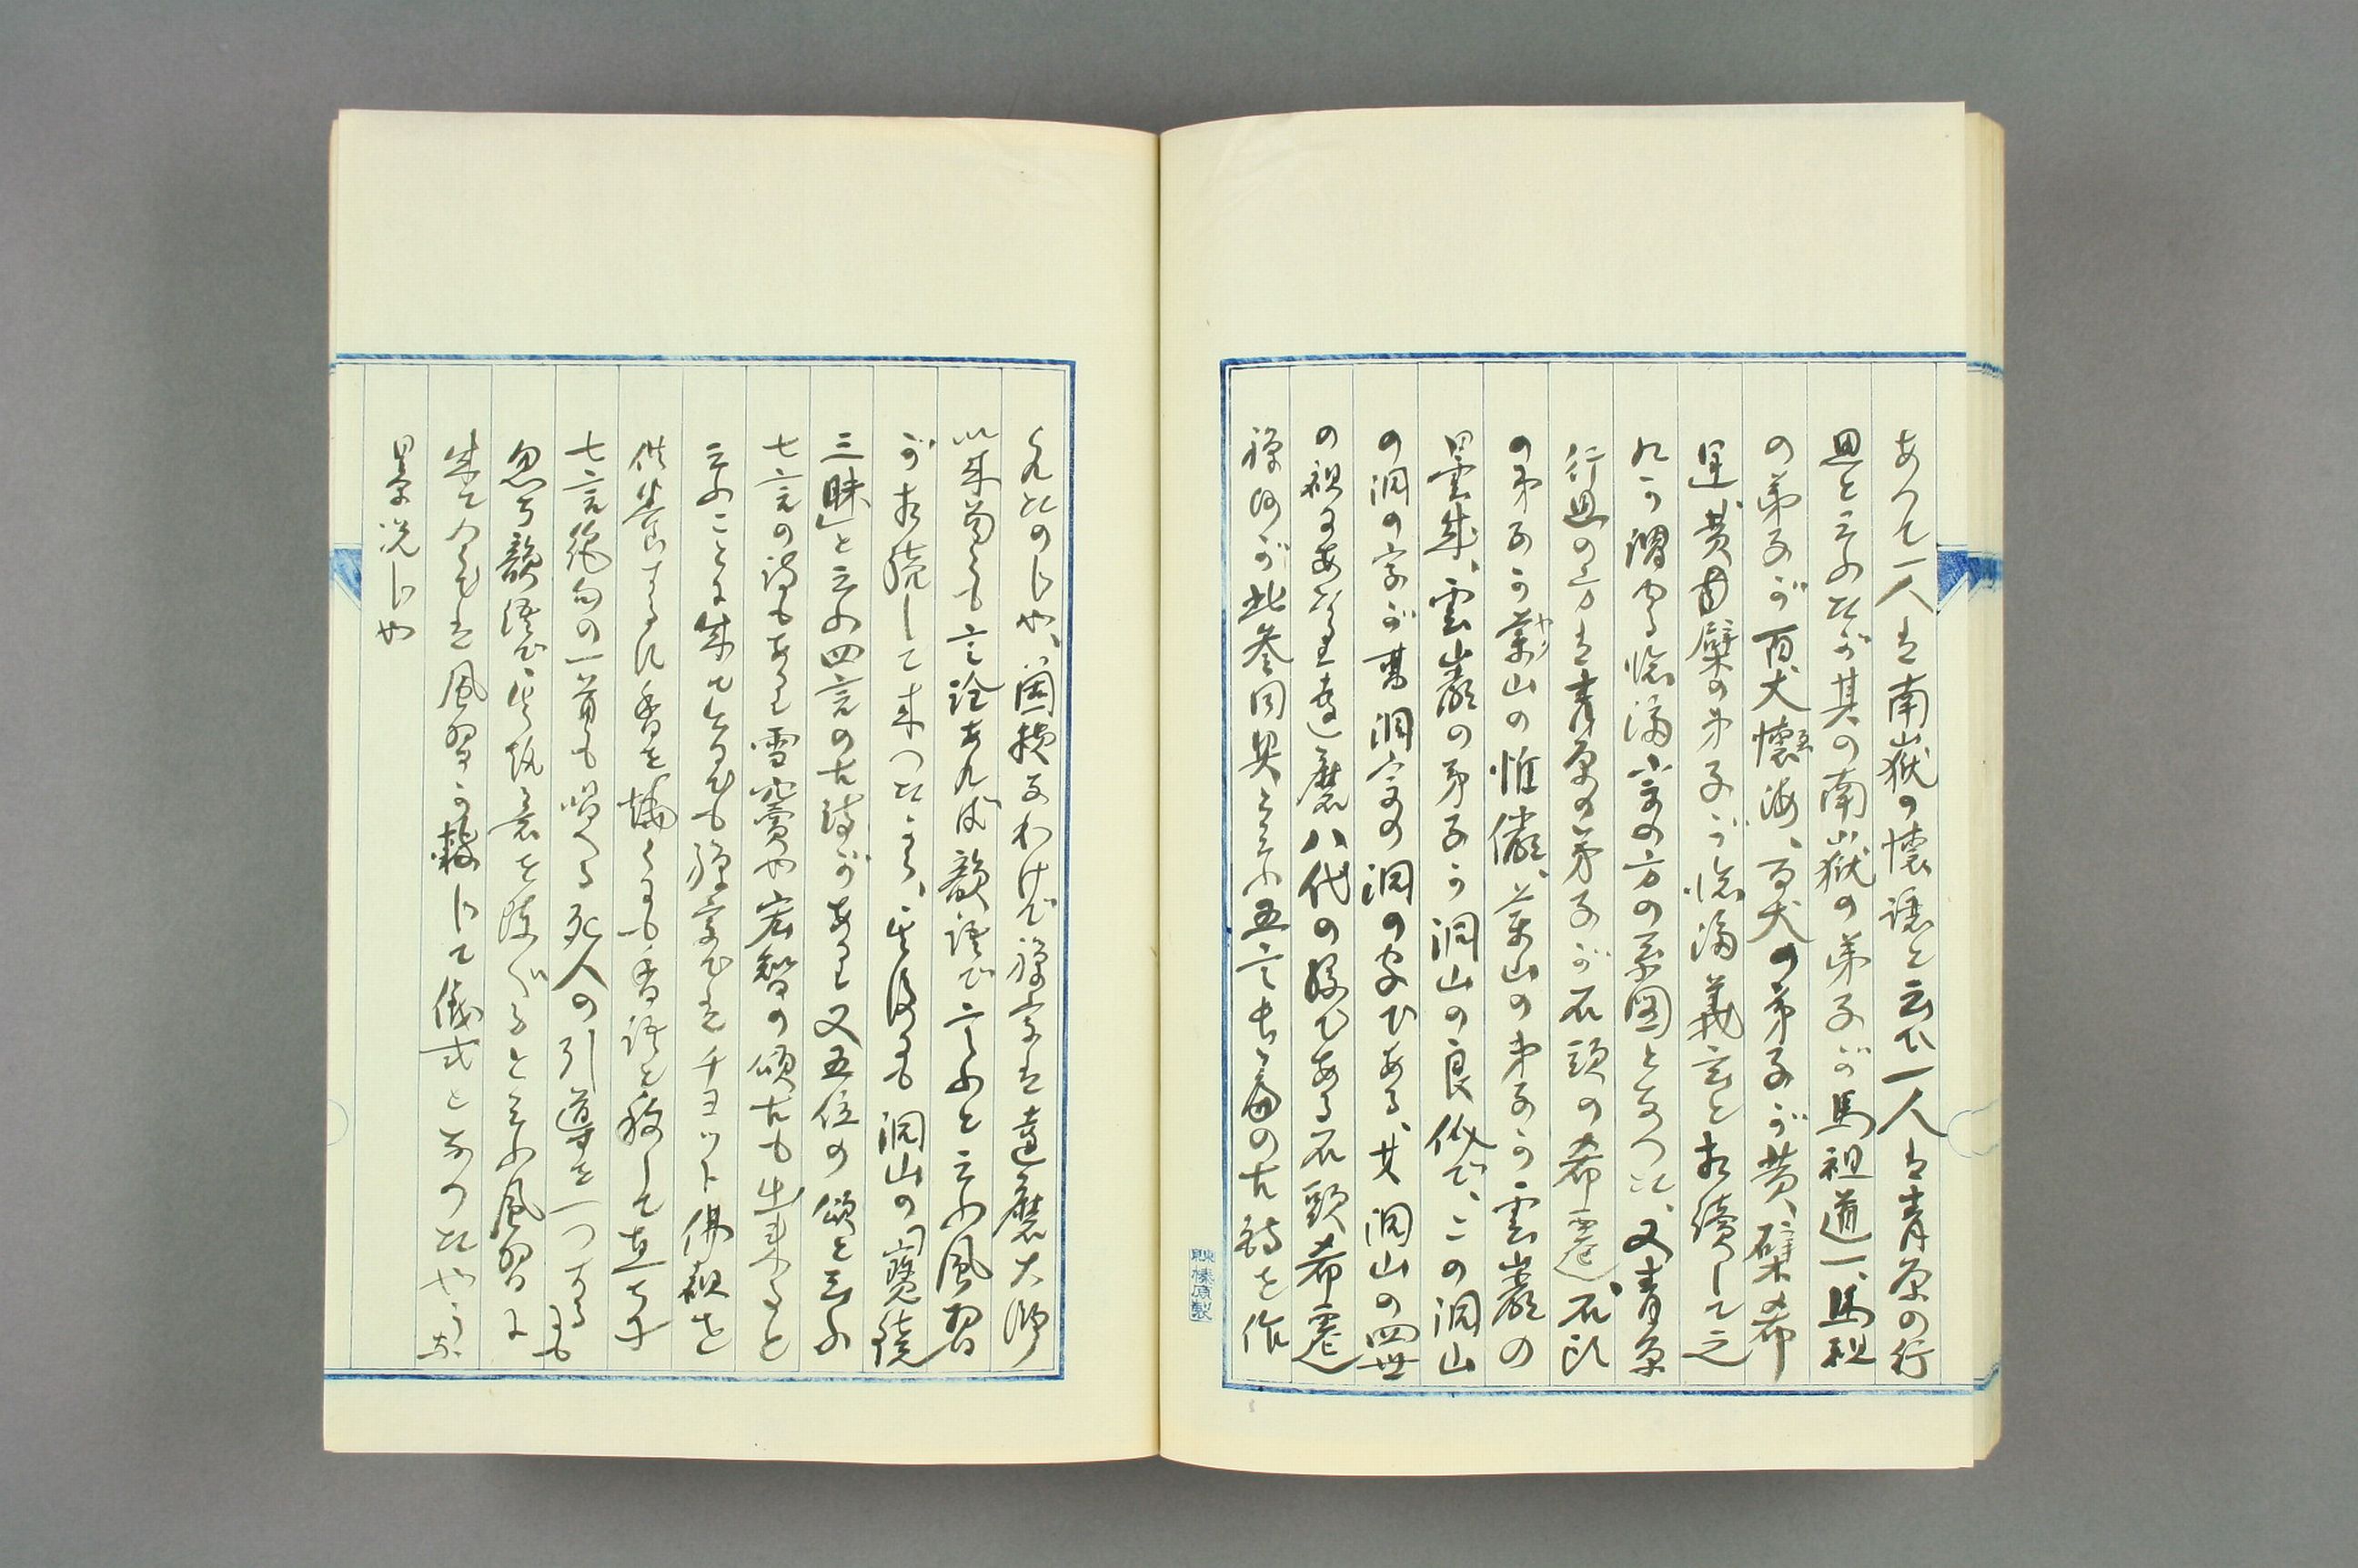 あつて一人は南嶽の懐譲と云ひ一人は青原の行
思と云ふたが其の南嶽の弟子が馬祖道一、馬祖
の弟子が百丈懐海、百丈の弟子が黄檗希
運、黄檗の弟子が臨済義玄と相續して之
れが謂ゆる臨済宗の方の系図となつた、又青原
行思の方は青原の弟子が石頭の希遷、石頭
の弟子が薬山の惟儼、薬山の弟子が雲巌の
曇晟、雲巌の弟子が洞山の良价で、この洞山
の洞の字が曹洞宗の洞の字である、其洞山の四世
の祖であり達磨八代の孫である石頭希遷
禅師が此参同契と云ふ五言長篇の古詩を作
られたのじや、箇様なわけで禅宗は達磨大師
以来何でも言詮あれば韻語で言ふと云ふ風習
が相続して来つたから、其後にも洞山の「寶鏡
三昧」と云ふ四言の古詩があり又五位の頌と云ふ
七言の詩もあり雪竇や宏智の頌古も出来ると
云ふことに成て今でも禅宗ではチヨツト佛祖を
供養するに香を焼くにも香語と称して直ちに
七言絶句の一首も唱へる死人の引導を一つするにも
忽ち韻語で法意を陳ぶると云ふ風習に
成て風習が轉じて儀式となつたやうな
景况じや
榛原製